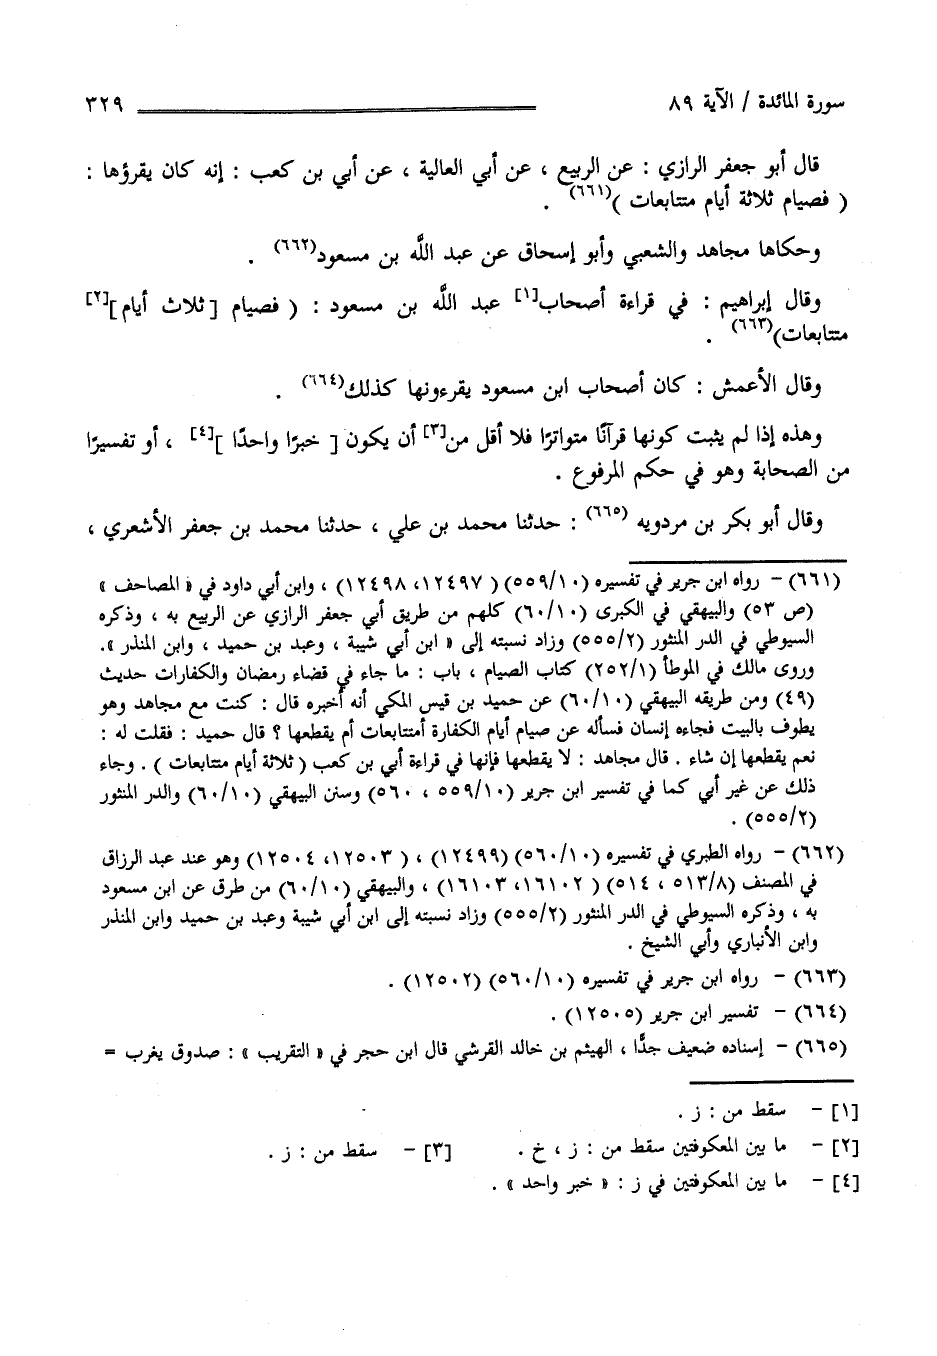 سورة المائدة / الآية ٨٩ ٣٢٩
قال أبو جعفر الرازي : عن الربيع ، عن أبي العالية ، عن أبي بن كعب : إنه كان يقرؤها :
( فصيام ثلاثة أيام متتابعات )(٦٦١) .
وحكاها مجاهد والشعبي وأبو إسحاق عن عبد اللَّه بن مسعود(٦٦٢) .
وقال إبراهيم : في قراءة أصحاب[١] عبد اللَّه بن مسعود : ( فصيام [ثلاث أيام][٢]
متتابعات)(٦٦٣) .
وقال الأعمش : كان أصحاب ابن مسعود يقرءونها كذلك(٦٦٤) .
وهذه إذا لم يثبت كونها قرآنًا متواترًا فلا أقل من[٣] أن يكون [ خبرًا واحدًا ][٤] ، أو تفسيرًا
من الصحابة وهو في حكم المرفوع .
وقال أبو بكر بن مردويه (٦٦٥) : حدثنا محمد بن علي ، حدثنا محمد بن جعفر الأشعري ،
(٦٦١) - رواه ابن جرير في تفسيره (٥٥٩/١٠) ( ١٢٤٩٧، ١٢٤٩٨) ، وابن أبي داود في « المصاحف »
(ص ٥٣) والبيهقي في الكبرى (٦٠/١٠) كلهم من طريق أبي جعفر الرازي عن الربيع به ، وذكره
السيوطي في الدر المنثور (٥٥٥/٢) وزاد نسبته إلى « ابن أبي شيبة ، وعبد بن حميد ، وابن المنذر ».
وروى مالك في الموطأ (٢٥٢/١) كتاب الصيام ، باب : ما جاء في قضاء رمضان والكفارات حديث
(٤٩) ومن طريقه البيهقي (٦٠/١٠) عن حميد بن قيس المكي أنه أخبره قال : كنت مع مجاهد وهو
يطوف بالبيت فجاءه إنسان فسأله عن صيام أيام الكفارة أمتتابعات أم يقطعها ؟ قال حميد : فقلت له :
نعم يقطعها إن شاء . قال مجاهد : لا يقطعها فإنها في قراءة أبي بن كعب ( ثلاثة أيام متتابعات ) . وجاء
ذلك عن غير أبي كما في تفسير ابن جرير (٥٥٩/١٠ ، ٥٦٠) وسنن البيهقي (٦٠/١٠) والدر المنثور
(٥٥٥/٢) .
(٦٦٢) - رواه الطبري في تفسيره (٥٦٠/١٠) (١٢٤٩٩) ، ( ١٢٥٠٣، ١٢٥٠٤) وهو عند عبد الرزاق
في المصنف (٥١٣/٨ ، ٥١٤) ( ١٦١٠٢، ١٦١٠٣) ، والبيهقي (٦٠/١٠) من طرق عن ابن مسعود
به ، وذكره السيوطي في الدر المنثور (٥٥٥/٢) وزاد نسبته إلى ابن أبي شيبة وعبد بن حميد وابن المنذر
وابن الأنباري وأبي الشيخ .
(٦٦٣) - رواه ابن جرير في تفسيره (٥٦٠/١٠) (١٢٥٠٢) .
(٦٦٤) - تفسير ابن جرير (١٢٥٠٥) .
(٦٦٥) - إسناده ضعيف جدًّا ، الهيثم بن خالد القرشي قال ابن حجر في « التقريب » : صدوق يغرب =
[١] - سقط من : ز .
[٢] - ما بين المعكوفتين سقط من : ز ، خ . [٣] - سقط من : ز .
[٤] - ما بين المعكوفتين في ز : « خبر واحد » .